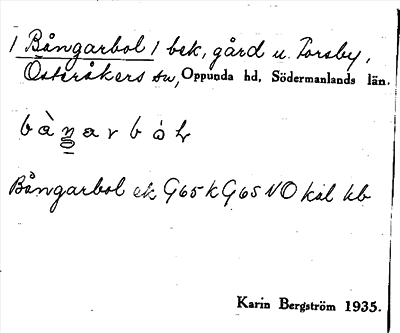 1 Bångarbol / bek, gård u. Forsby,
Österåkers sn, Oppunda hd, Södermanlands län.
Bångarbol ek G65 k G65 NO kal kb
Karin Bergström 1935.